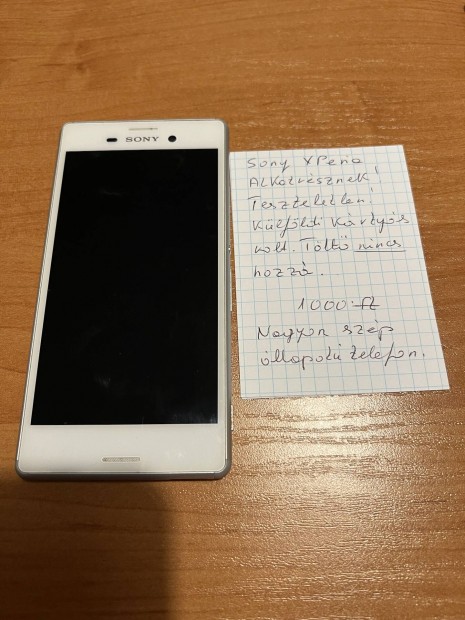 SONY
Sony XPeria
ALKatrésznek!
Teszteletlen!
Külföldi kártyás
volt. Töltő nincs
hozzá.
1000.-Ft
Nagyon szép
állapotú telefon.